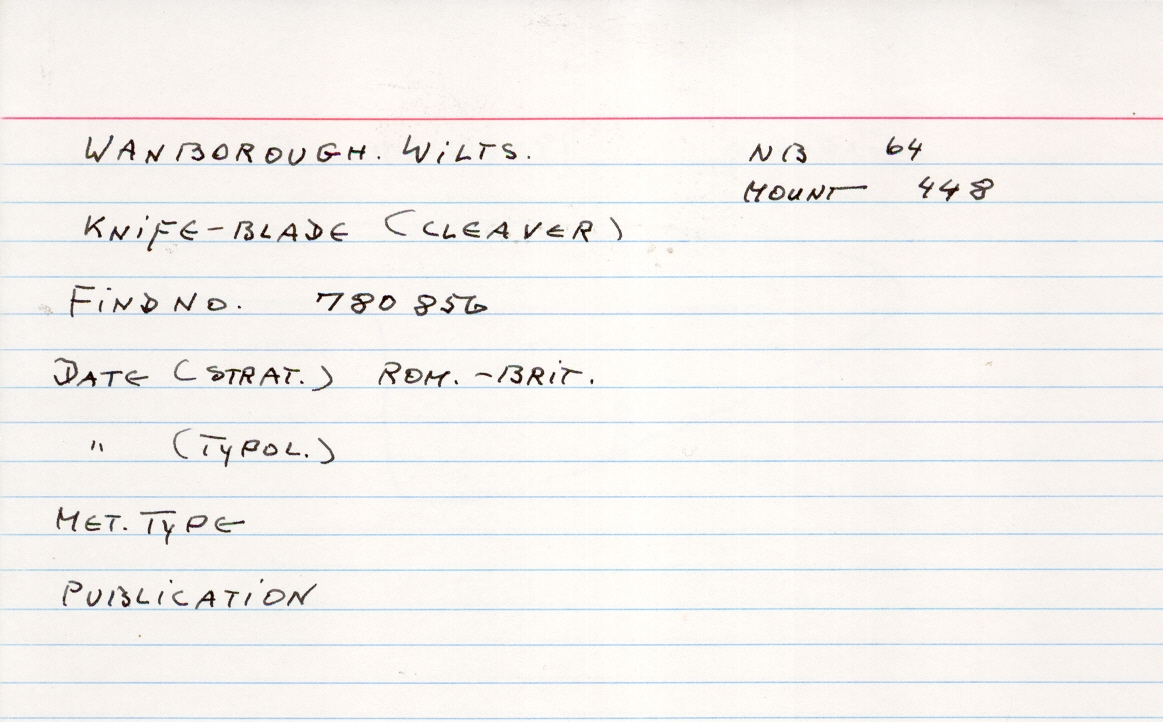 WANBOROUGH. WILTS. NB 64
MOUNT 448
KNIFE-BLADE (CLEAVER)
FIND NO. 780 856
DATE (STRAT.) ROM.-BRIT.
" (TYPOL.)
MET. TYPE
PUBLICATION